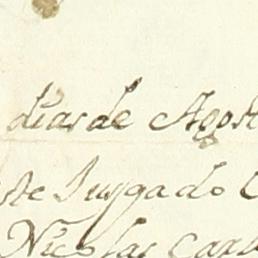 dias de Agost
ste Jusgado C
Nicolas Carl